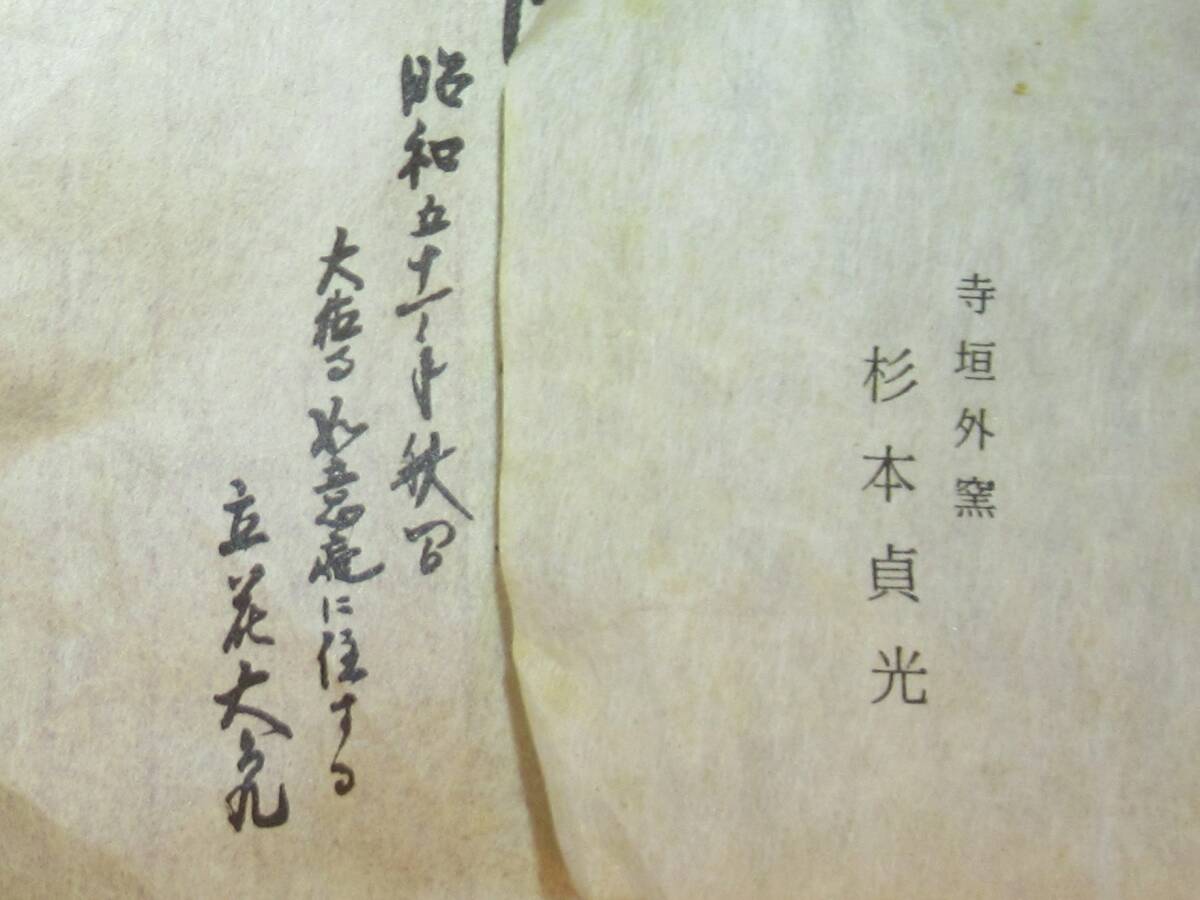 寺垣外窯
杉本貞光
昭和五十一年秋日
大徳寺如意庵に住する
立花大亀